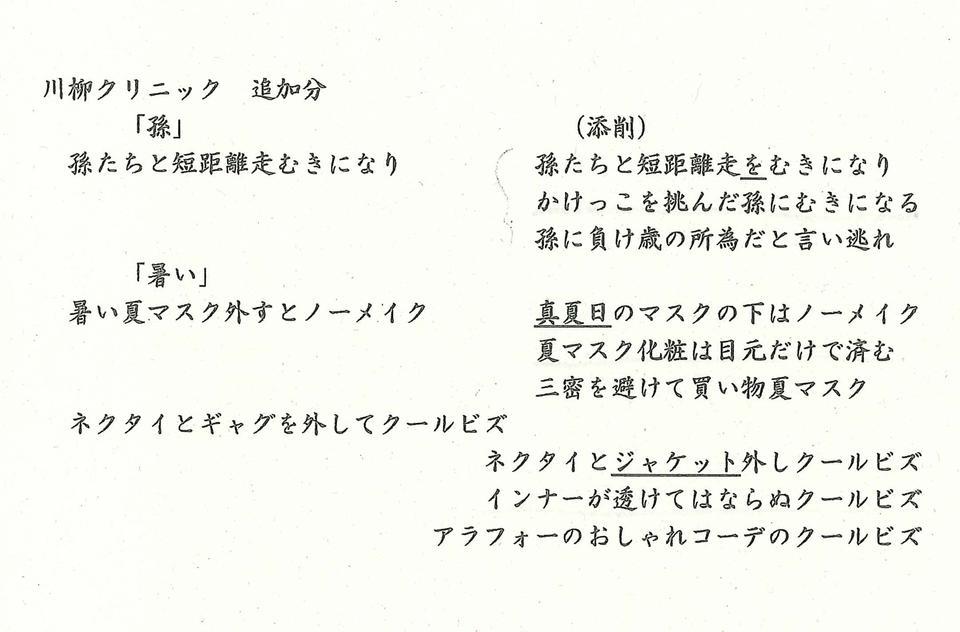 川柳クリニック　追加分
「孫」　（添削）
孫たちと短距離走むきになり　孫たちと短距離走をむきになり
かけっこを挑んだ孫にむきになる
孫に負け歳の所為だと言い逃れ
「暑い」
暑い夏マスク外すとノーメイク　真夏日のマスクの下はノーメイク
夏マスク化粧は目元だけで済む
三密を避けて買い物夏マスク
ネクタイとギャグを外してクールビズ
ネクタイとジャケット外しクールビズ
インナーが透けてはならぬクールビズ
アラフォーのおしゃれコーデのクールビズ